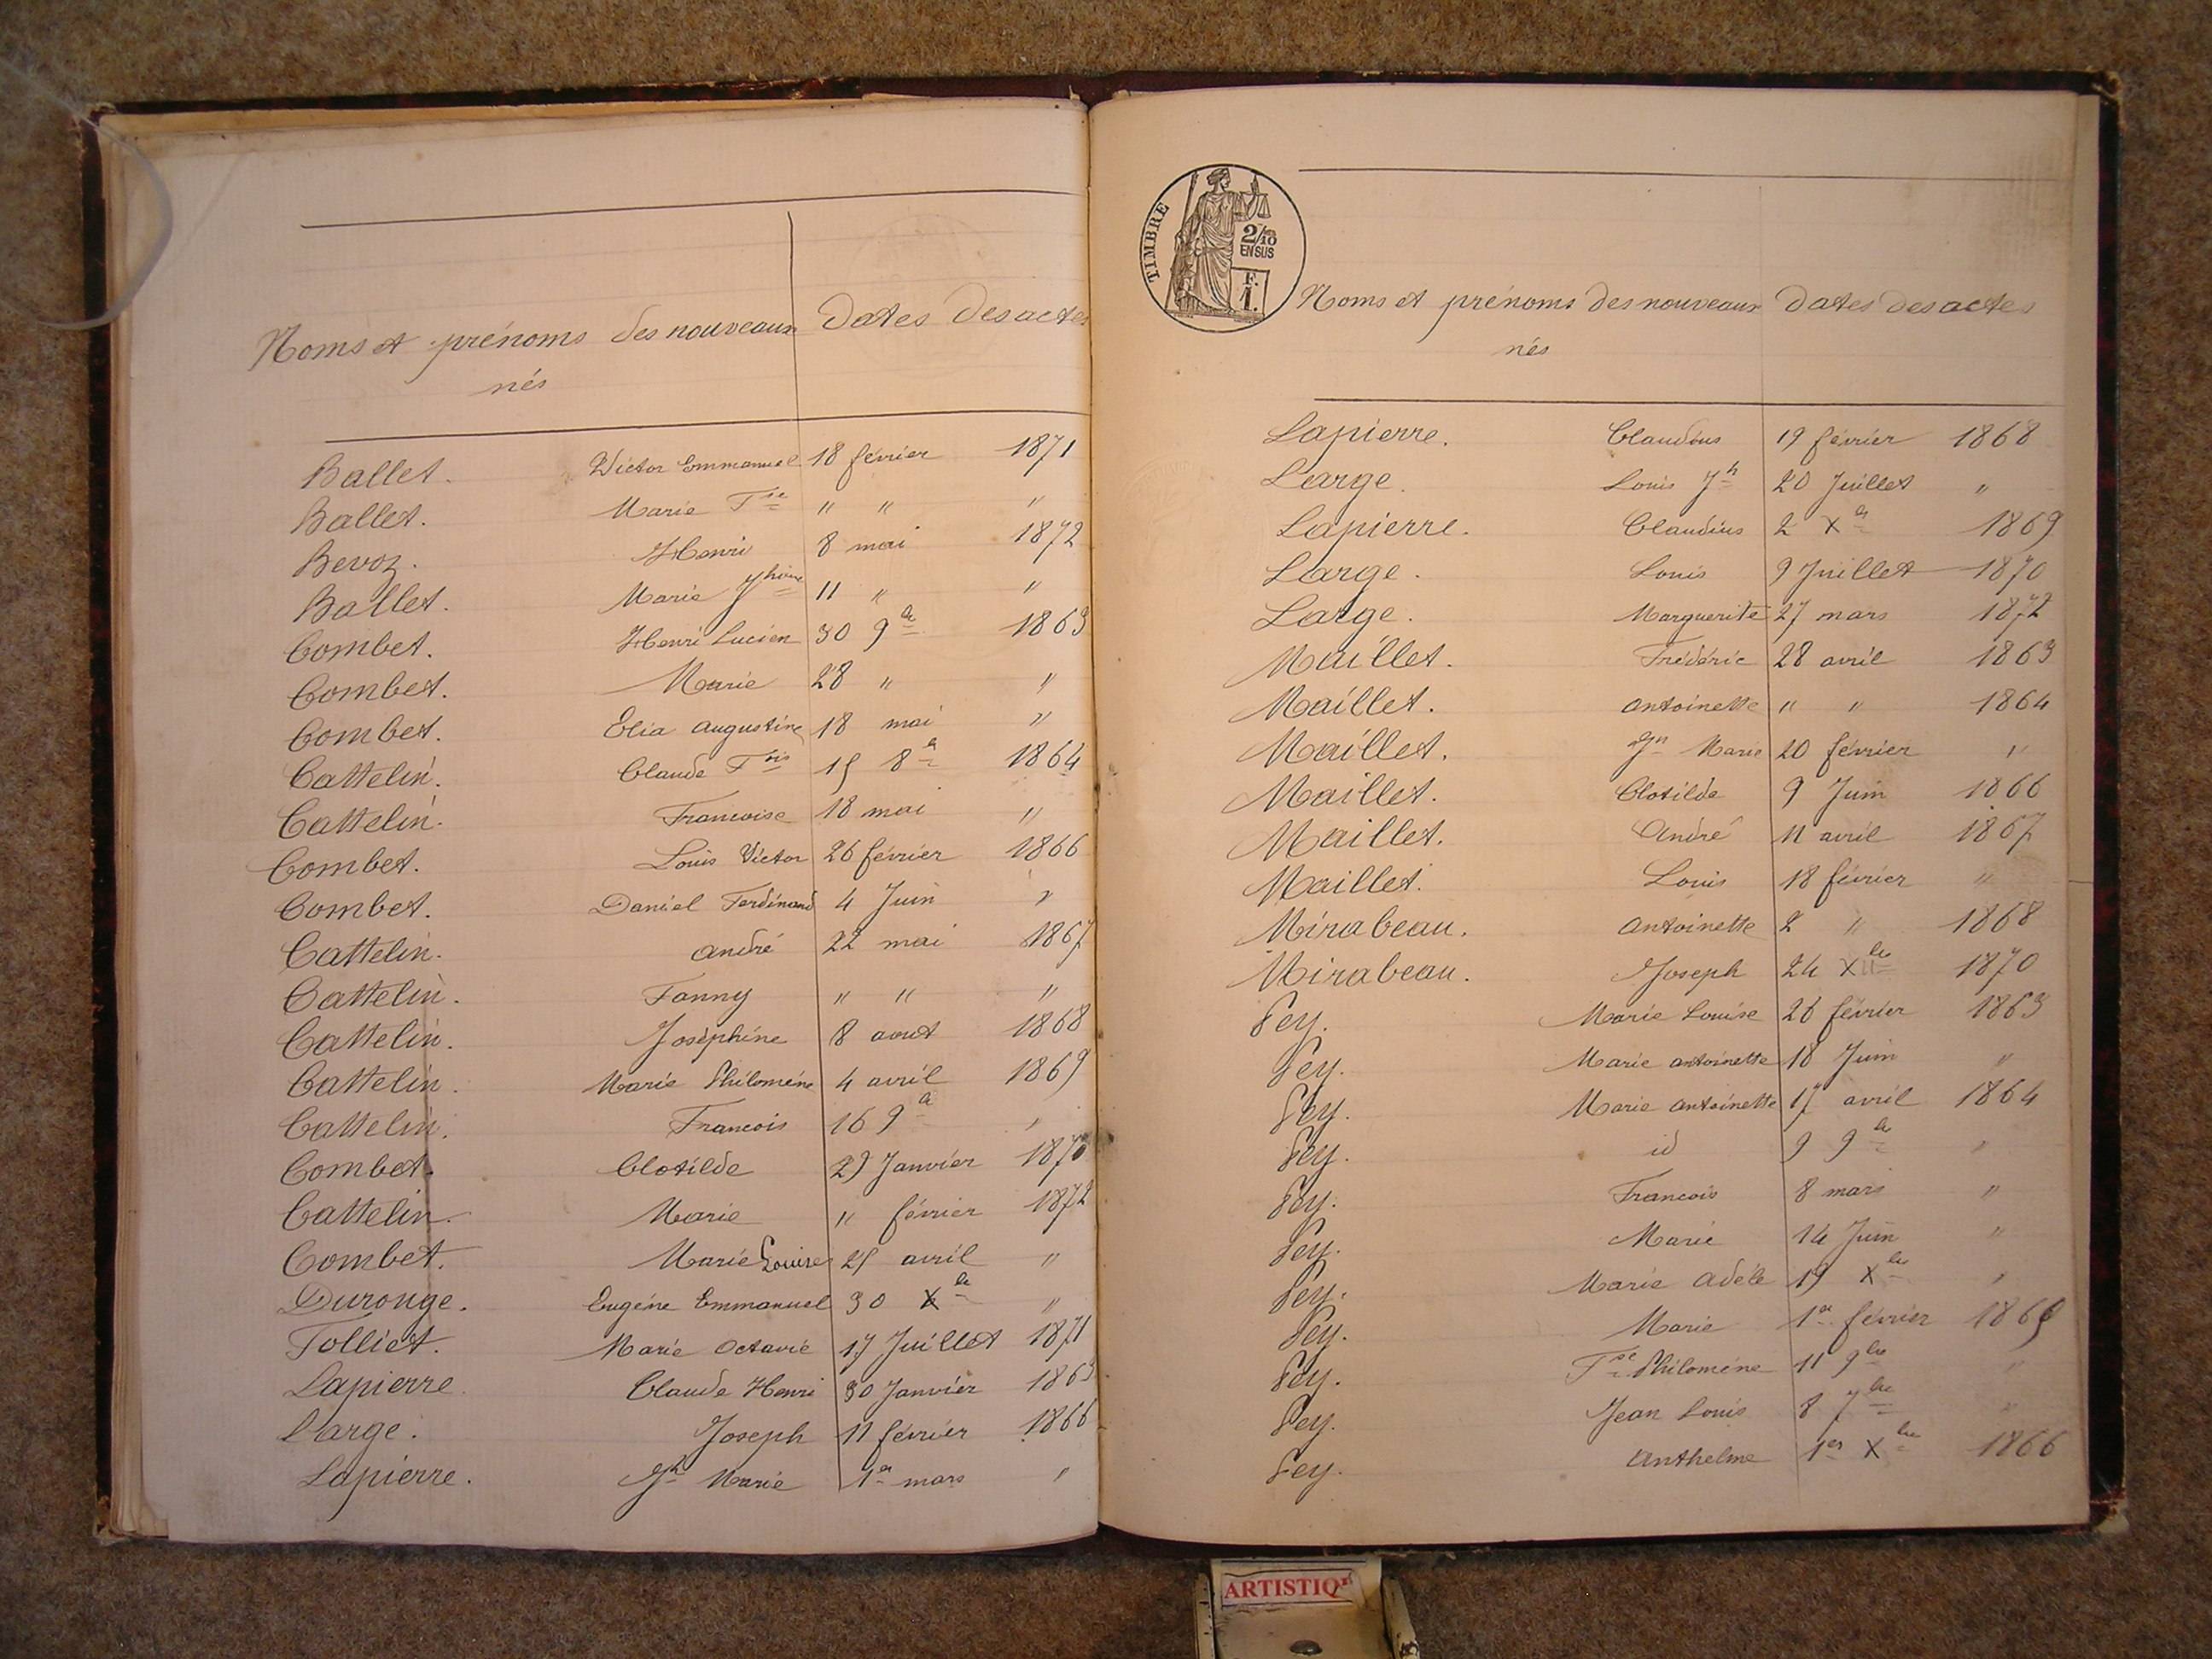 Noms et prénoms des nouveaux Dates des actes
nés
Ballet. Victor Emmanuel 18 février 1871
Ballet. Marie Fse " " "
Bevoz. Henri 8 mai 1872
Ballet. Marie Jhine 11 " "
Combet. Henri Lucien 30 9bre 1863
Combet. Marie 28 " "
Combet. Elia Augustine 18 mai "
Cattelin. Claude Fois 15 8bre 1864
Cattelin. Francoise 18 mai "
Combet. Louis Victor 26 février 1866
Combet. Daniel Ferdinand 4 Juin "
Cattelin. André 22 mai 1867
Cattelin. Fanny " " "
Cattelin. Joséphine 8 aout 1868
Cattelin. Marie Philomène 4 avril 1869
Cattelin. Francois 16 9bre "
Combet. Clotilde 29 Janvier 1870
Cattelin. Marie " février 1872
Combet. Marie Louise 25 avril "
Duronge. Eugène Emmanuel 30 Xbre "
Tolliet. Marie Octavie 17 Juillet 1871
Lapierre. Claude Henri 30 Janvier 1863
Large. Joseph 11 février 1866
Lapierre. Jh Marie 1er mars "
TIMBRE
2/10
EN SUS
F.
1.
Noms et prénoms des nouveaux Dates des actes
nés
Lapierre. Claudius 19 février 1868
Large. Louis Jh 20 Juillet "
Lapierre. Claudius 2 Xbre 1869
Large. Louis 9 Juillet 1870
Large. Marguerite 27 mars 1872
Maillet. Frédéric 28 avril 1863
Maillet. Antoinette " " 1864
Maillet. Jn Marie 20 février "
Maillet. Clotilde 9 Juin 1866
Maillet. André 11 avril 1867
Maillet. Louis 18 février "
Mirabeau. Antoinette 2 " 1868
Mirabeau. Joseph 24 Xbre 1870
Pey. Marie Louise 26 février 1863
Pey. Marie Antoinette 18 Juin "
Pey. Marie Antoinette 17 avril 1864
Pey. id 9 9bre "
Pey. Francois 8 mars "
Pey. Marie 14 Juin "
Pey. Marie Adèle 19 Xbre "
Pey. Marie 1er février 1865
Pey. Fse Philomène 11 9bre "
Pey. Jean Louis 8 7bre "
Pey. Anthelme 1er Xbre 1866
ARTISTIQ